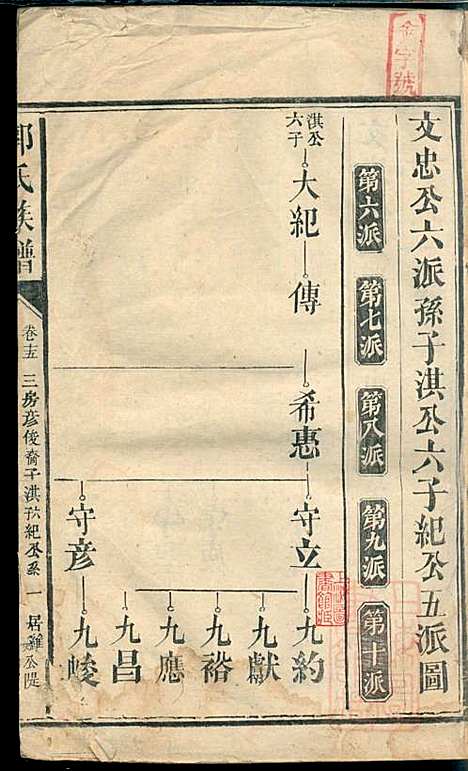 金字號
文忠公六派孫子淇公六子紀公五派圖
第六派
第七派
第八派
第九派
第十派
淇公六子
大紀
傳
希惠
守立
九約
九獻
九裕
九應
九昌
守彦
九峻
氏族譜
卷十五
三房彦俊裔子淇六紀公系
一
居雞公隄